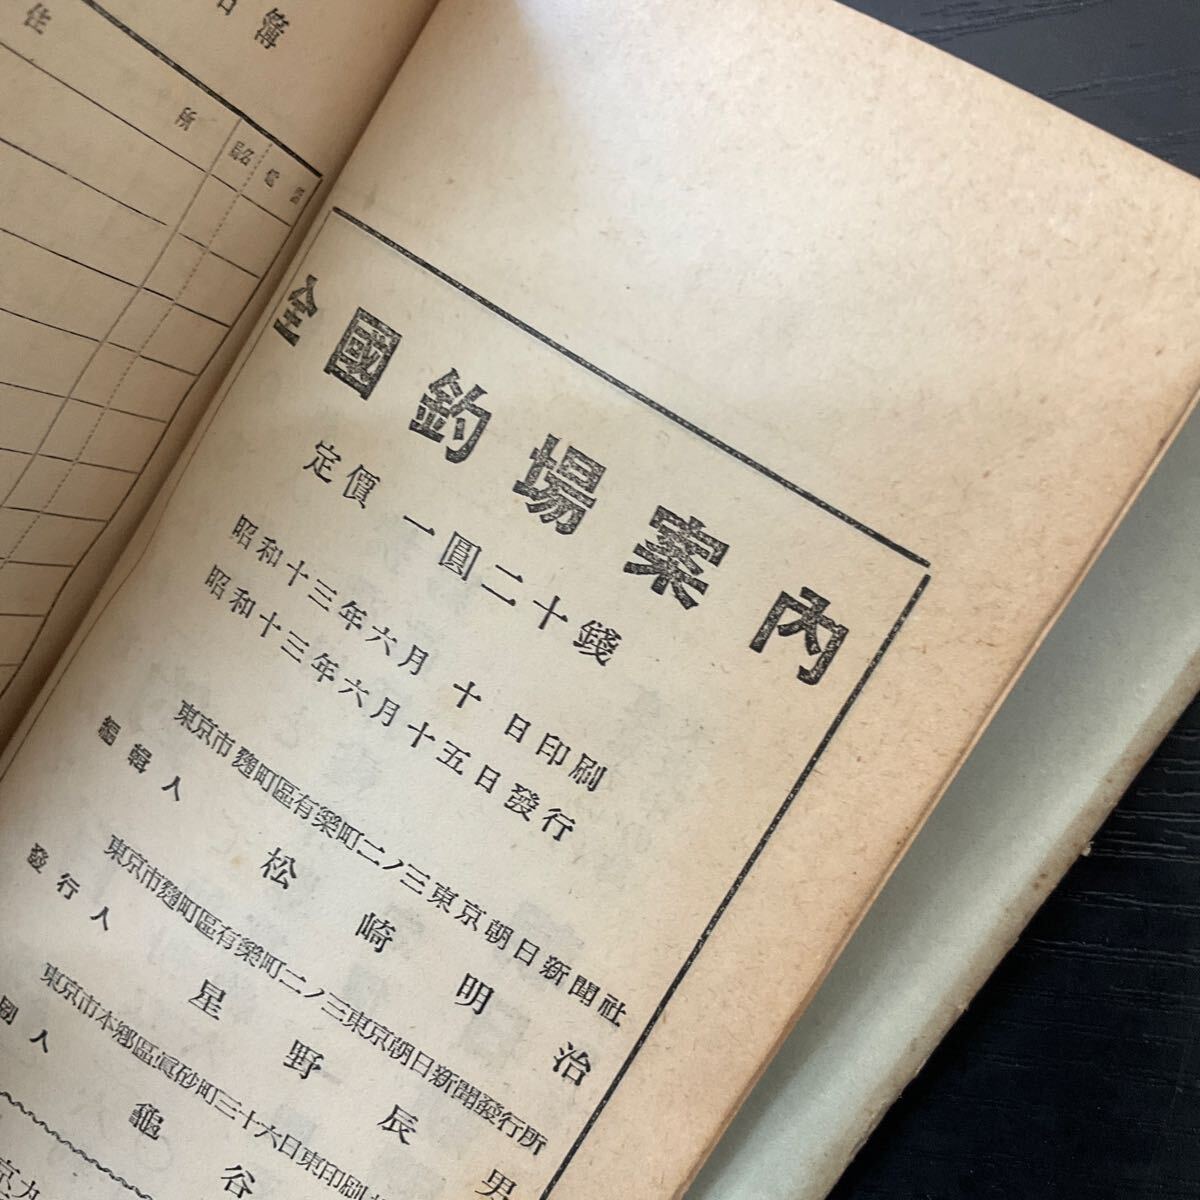 簿
住所
全國釣場案內
定價一圓二十錢
昭和十三年六月十日印刷
昭和十三年六月十五日發行
東京市麴町區有樂町二ノ三東京朝日新聞社
編輯人 松崎明治
東京市麴町區有樂町二ノ三東京朝日新聞發行所
發行人 星野辰男
東京市本鄕區眞砂町三十六日東印刷
刷人 龜谷
京九